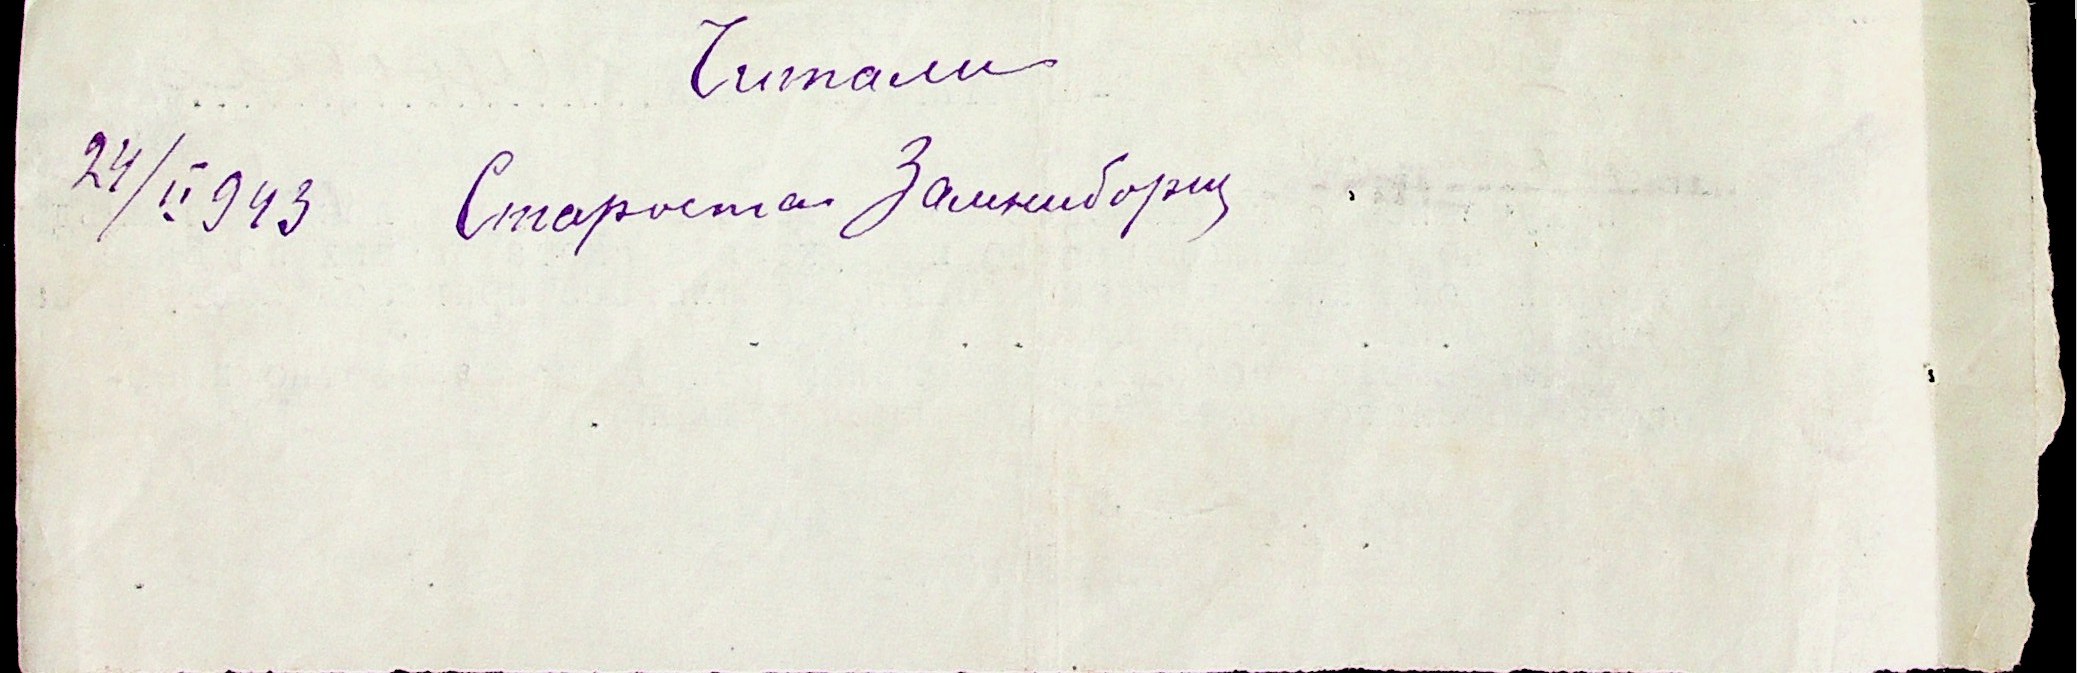 Читали
24/II 943 Староста Замниборщ